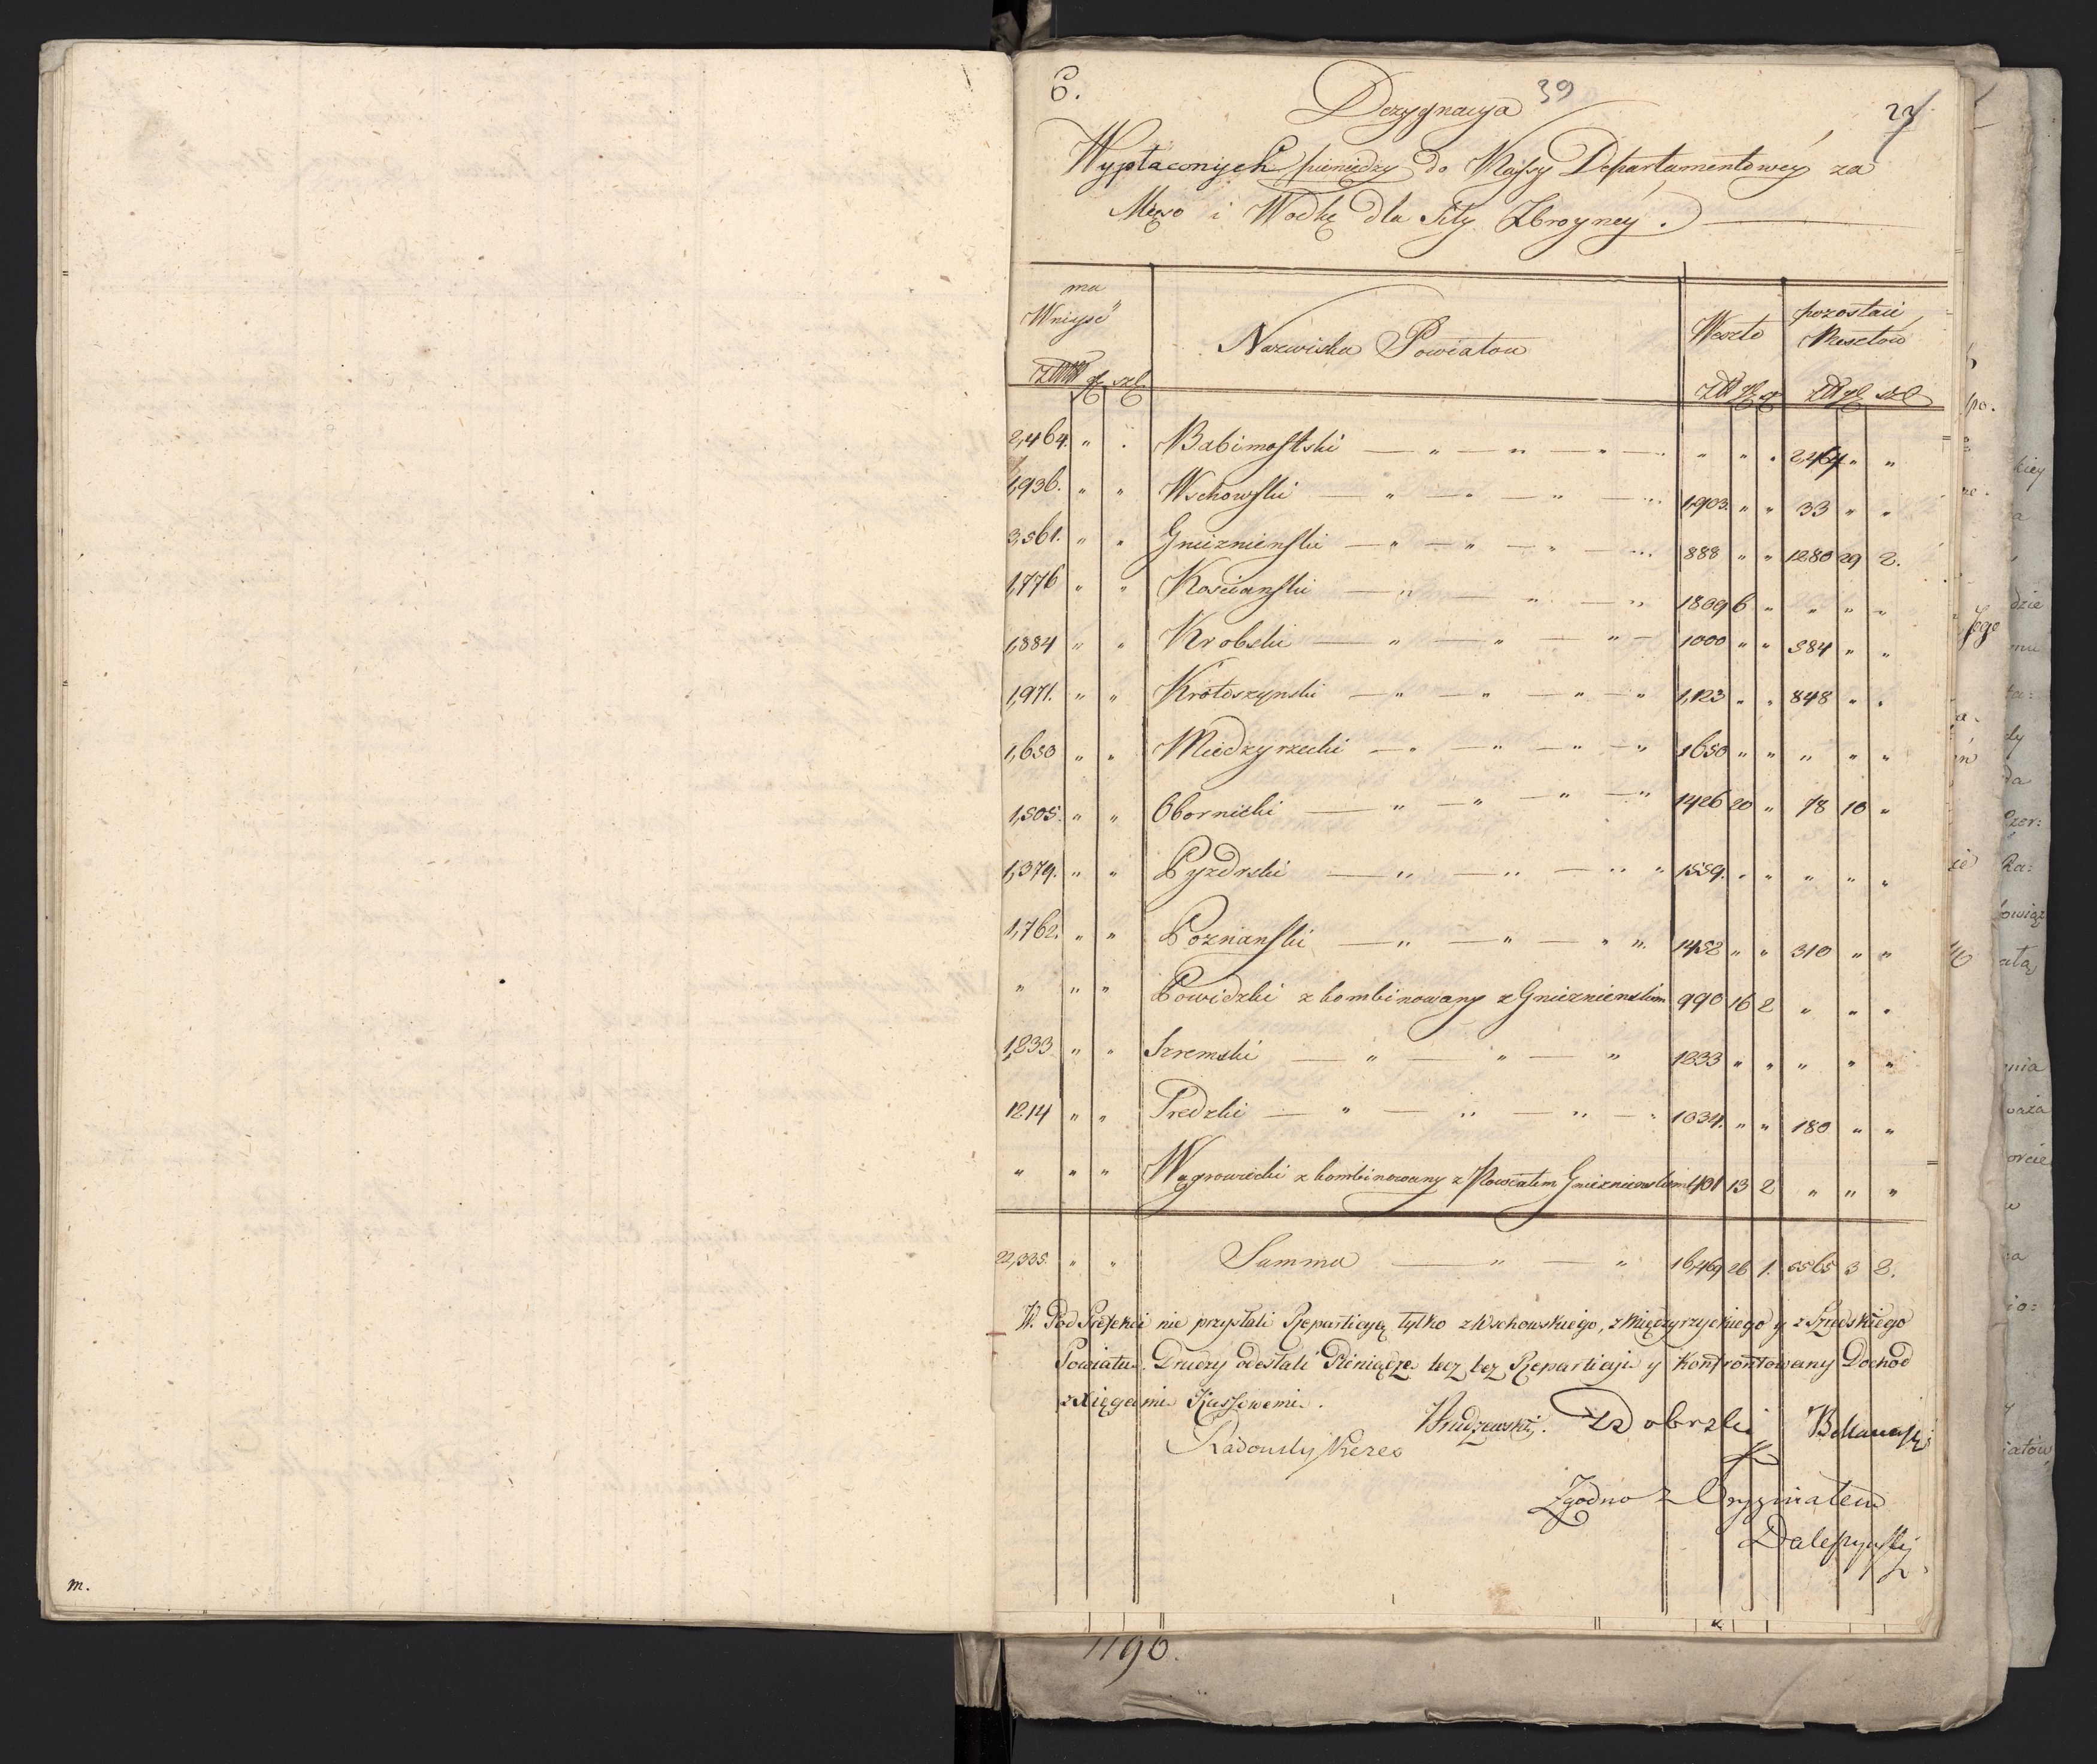 6.
39
27
Dezygnacya
Wypłaconych pieniędzy do Kassy Departamentowey za
Mięso i Wodkę dla Siły Zbroyney.
ma
Wniyść Nazwiska Powiatow Weszło pozostaie Resztow
Zł gr szl. Zł gr Zł gr szl
2,464. " . Babimostski — " — " — " — " " " 2464 " "
1,936. " " Wschowski — " — " — " — 1,903. " " 33 " "
3,561. " " Gnieznienski — " — " — " — 888 " " 1280 29 2.
1,776 " " Kościanski — " — " — " 1809 6 " " " "
1,884 " " Krobski — " — " — " — 1000 " " 884 " "
1,971. " " Krotoszynski — " — " — " — " 1,123 " " 848 " "
1,650 " " Miedzyrzecki — " — " — " — " 1650 " " " " "
1,505. " " Obornicki — " — " — " — " 1426 20 " 78 10 "
1,379. " " Pyzdrski — " — " — " " 1559. " " " " "
1,762. " " Poznanski — " — " — " " 1452 " " 310 " "
" " " Powidzki zkombinowany z Gnieznienskim 990 16 2 " " "
1,233 " " Szremski — " — " — " 1233 " " " " "
1214 " " Sredzki — " — " — " — 1034. " " 180 " "
" " " Wągrowiecki zkombinowany z Powiatem Gnieznienskim 401 13 2 " " "
22,335. " " Summa — " — " 16,469 26 1. 6565 3 2.
W. Pod Prefekci nie przysłali Repartycyą tylko z Wschowskiego, z Międzyrzyckiego y z Szredskiego
Powiatu. Drudzy odesłali Pieniądze lecz bez Repartycyi y Konfrontowany Dochod
z Xięgami Kassowemi.
Dobrzki
Radonsky
Zgodno z Oryginałem
m.
1190.